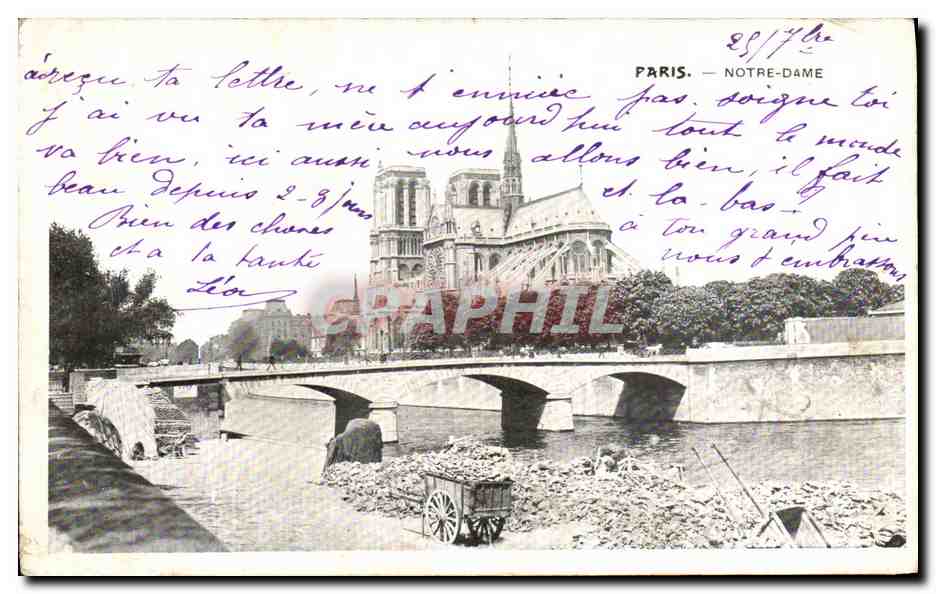 25/7bre
PARIS. — NOTRE-DAME
a reçu ta lettre, ne t'ennuie pas soigne toi
j'ai vu ta mère aujourd'hui tout le monde
va bien, ici aussi nous allons bien, il fait
beau depuis 2-3 jours et la-bas
Bien des choses à ton grand père
et a la tante nous t'embrassons
Léon
CAPHIL